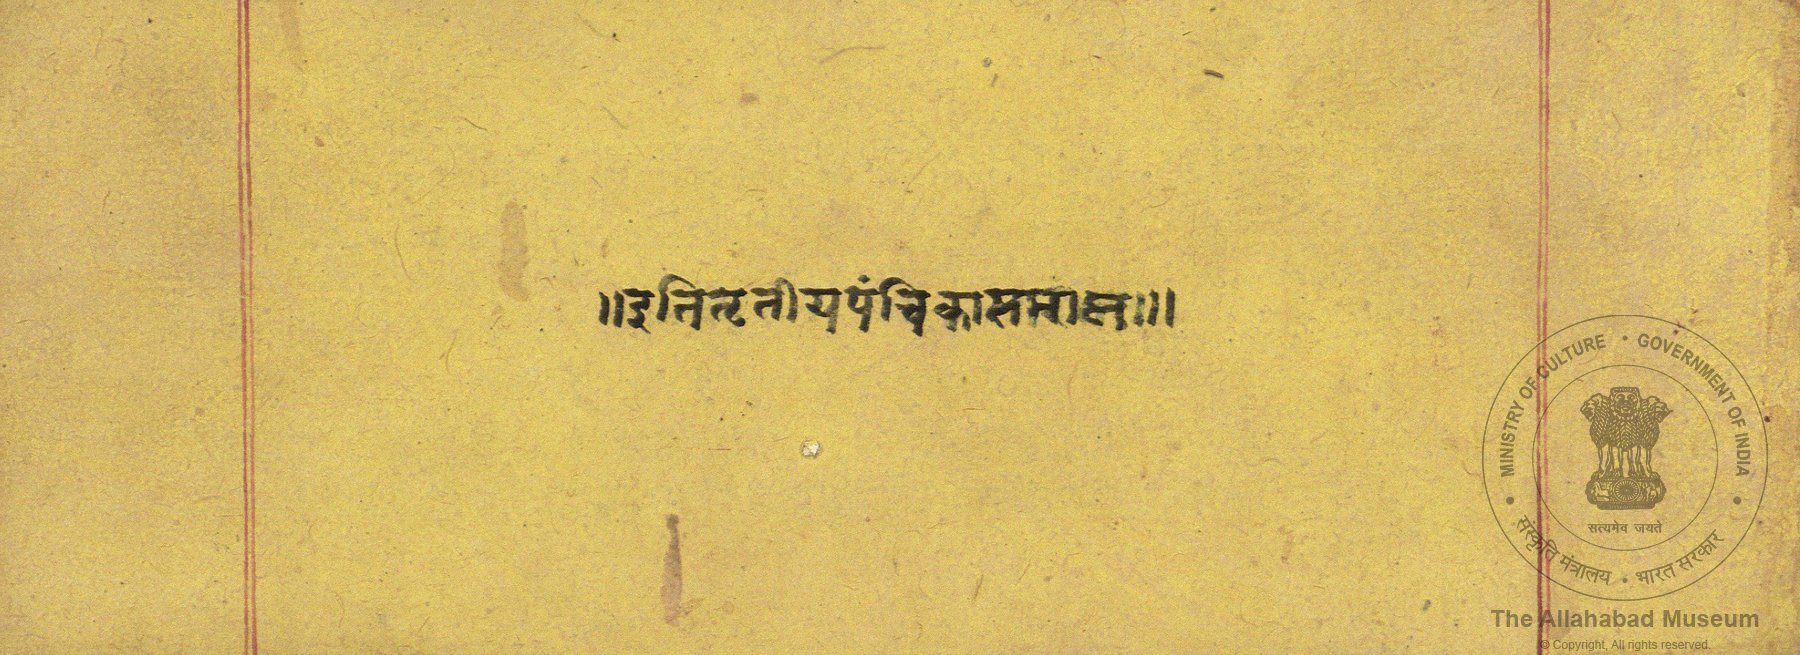 ॥इतितृतीयपंचिकासमाप्त॥।
MINISTRY OF CULTURE • GOVERNMENT OF INDIA
सत्यमेव जयते
संस्कृति मंत्रालय • भारत सरकार
The Allahabad Museum
© Copyright, All rights reserved.